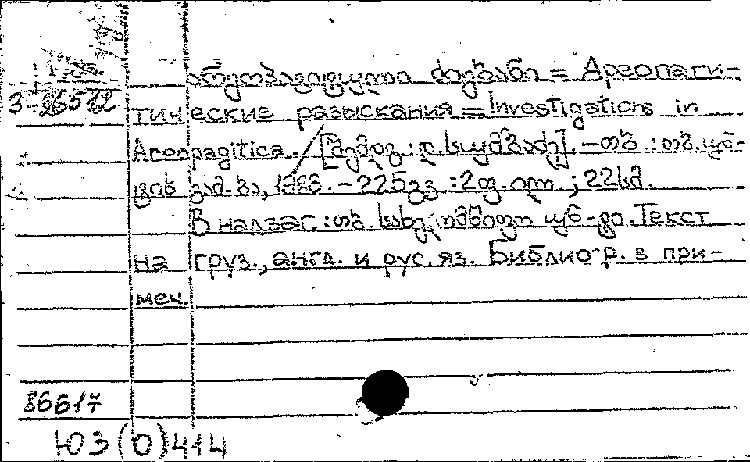 3-26512
არეოპაგიტული ძიებანი = Ареопаги-
тические разыскания = Investigations in
Areopagitica. - [შემდგ.: დ. სუმბაძე]. - თბ.: თბ. უნ-
ტის გამ-ბა, 1986. - 225გვ.: 2ფ. ილ.; 22სმ.
В надзаг.: თბ. სახელმწიფო უნ-ტი. Текст
на груз., англ. и рус. яз. Библиогр. в при-
меч.
86617
Ю3(0)414